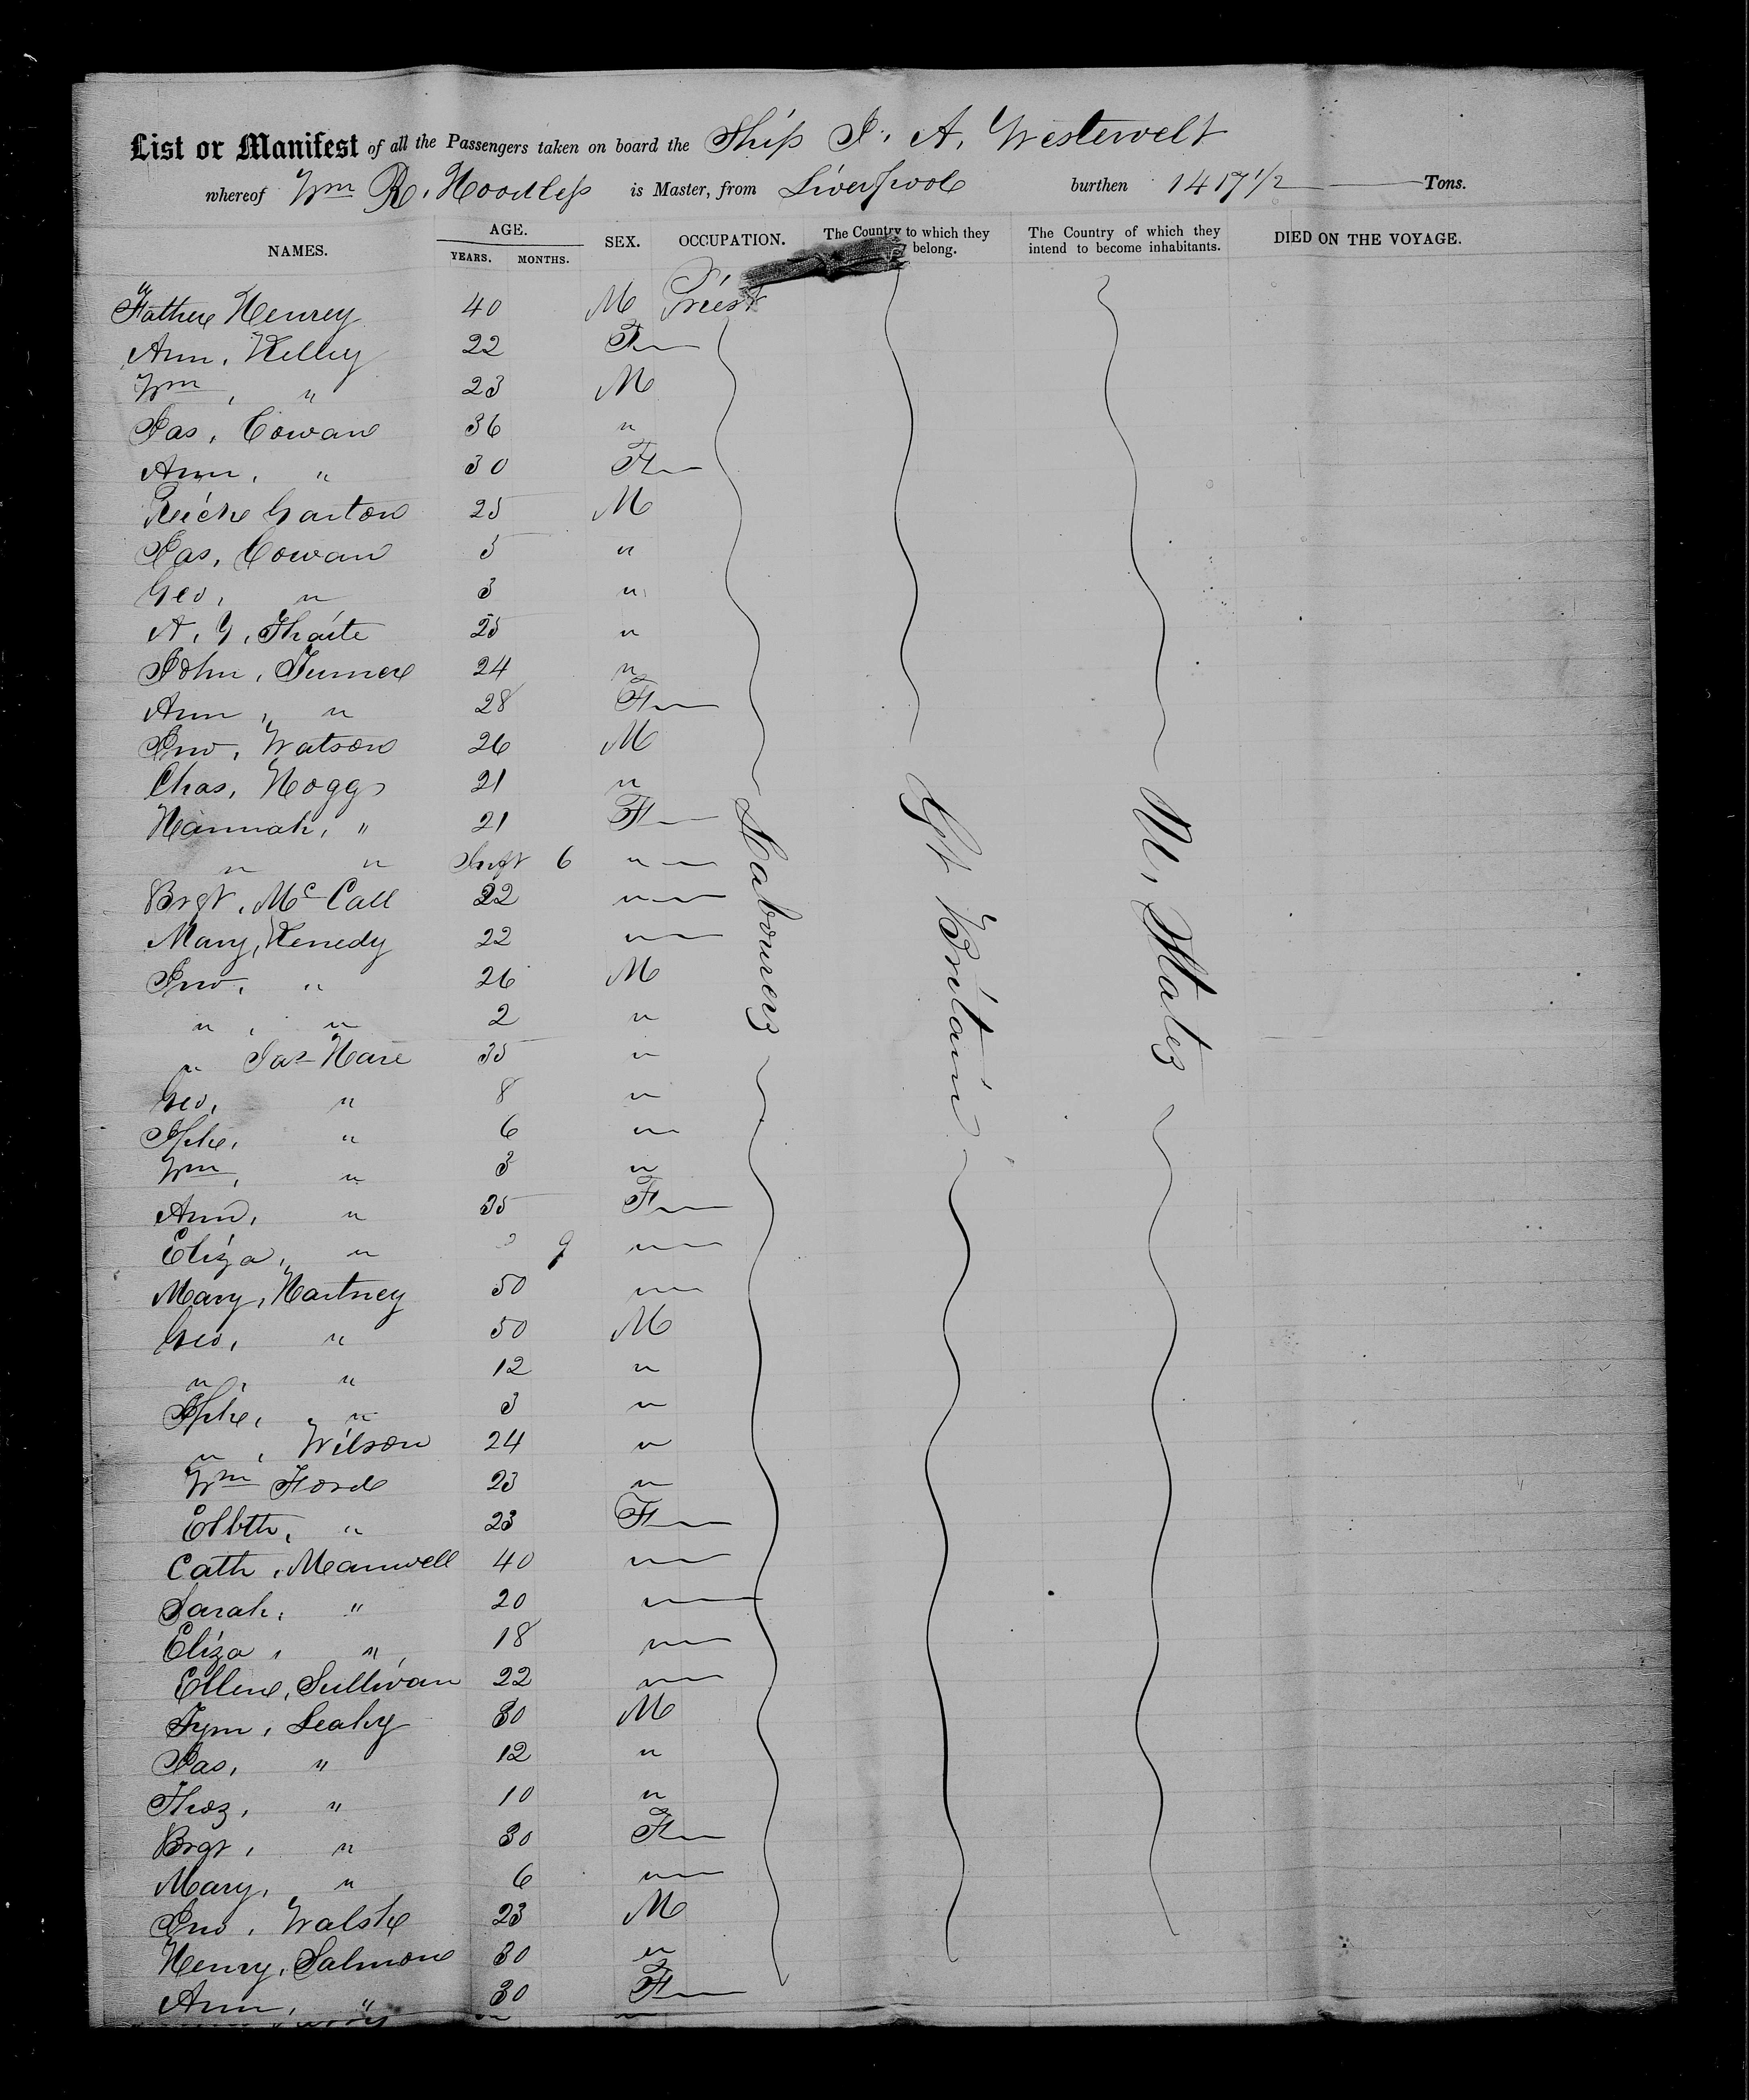 List or Manifest of all the Passengers taken on board the Ship J. A. Westervelt
whereof Wm R. Hoodless is Master, from Liverpool burthen 1417 1/2 Tons.
NAMES. AGE. YEARS. MONTHS. SEX. OCCUPATION. The Country to which they belong. The Country of which they intend to become inhabitants. DIED ON THE VOYAGE.
Father Henrey 40 M Priest
Ann, Kelley 22 F
Wm, " 23 M
Jas, Cowan 36 "
Ann, " 30 F
Garton 25 M
Jas, Cowan 5 "
Geo, " 3 "
A, Y, Thaite 25 "
John, Turner 24 "
Ann, " 28 F
Jno, Watson 26 M
Chas, Hoggs 21 "
Hannah, " 21 F
" " Inft 6 "
Brgt, McCall 22 "
Mary, Kenedy 22 "
Jno, " 26 M
", " 2 "
" Jas Hare 35 "
Geo, " 8 "
Jphe, " 6 "
Wm, " 3 "
Ann, " 35 F
Eliza, " 9 "
Mary, Hartney 50 "
Geo, " 50 M
", " 12 "
Jphe, " 3 "
", Wilson 24 "
Wm Ford 23 "
Elbth, " 23 F
Cath, Meanwell 40 "
Sarah, " 20 "
Eliza, " 18 "
Ellen, Sullivan 22 "
Tym, Leahy 30 M
Jas, " 12 "
Thoz, " 10 "
Brgt, " 30 F
Mary, " 6 "
Jno, Walsh 23 M
Henry, Salmon 30 "
Ann, " 30 F
Labourers
Gt Britain
U, States